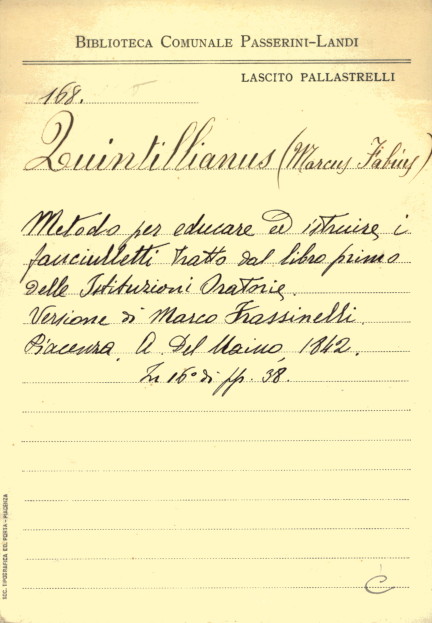 BIBLIOTECA COMUNALE PASSERINI-LANDI
LASCITO PALLASTRELLI
168.
Quintillianus (Marcus Fabius)
Metodo per educare ed istruire i
fanciulletti tratto dal libro primo
delle Istituzioni Oratorie.
Versione di Marco Frassinelli.
Piacenza, A. Del Maino, 1842.
In 16° di pp. 38.
C
SOC. TIPOGRAFICA ED. PORTA - PIACENZA